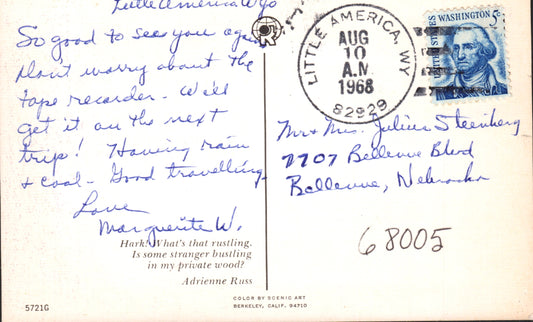 Little America Wyo
So good to see you again
Don't worry about the
tape recorder - We'll
get it on the next
trip! Having rain
& cool - Good travelling.
Love
Marguerite W.
Hark! What's that rustling.
Is some stranger bustling
in my private wood?
Adrienne Russ
5721G
COLOR BY SCENIC ART
BERKELEY, CALIF. 94710
LITTLE AMERICA, WY
AUG
10
A.M
1968
82929
UNITED STATES WASHINGTON 5c
Mr & Mrs. Julius Steinberg
7707 Bellevue Blvd
Bellevue, Nebraska
68005